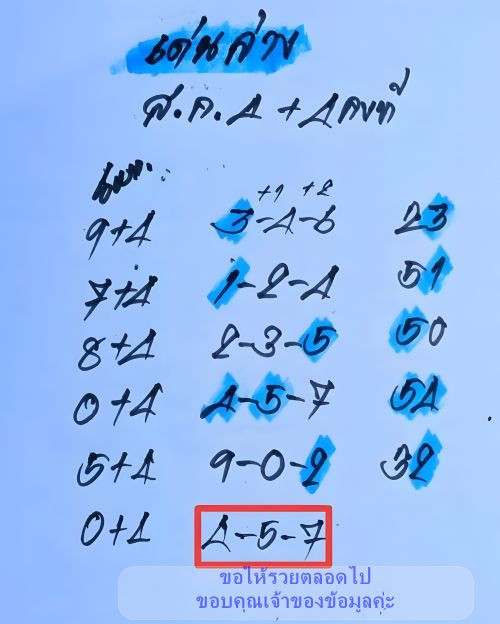 เด่นล่าง
ส.ค.4 + 4 คงที่
+1 +2
9+4 3-4-6 23
7+4 1-2-4 51
8+4 2-3-5 50
0+4 4-5-7 54
5+4 9-0-2 32
0+4 4-5-7
ขอให้รวยตลอดไป
ขอบคุณเจ้าของข้อมูลค่ะ